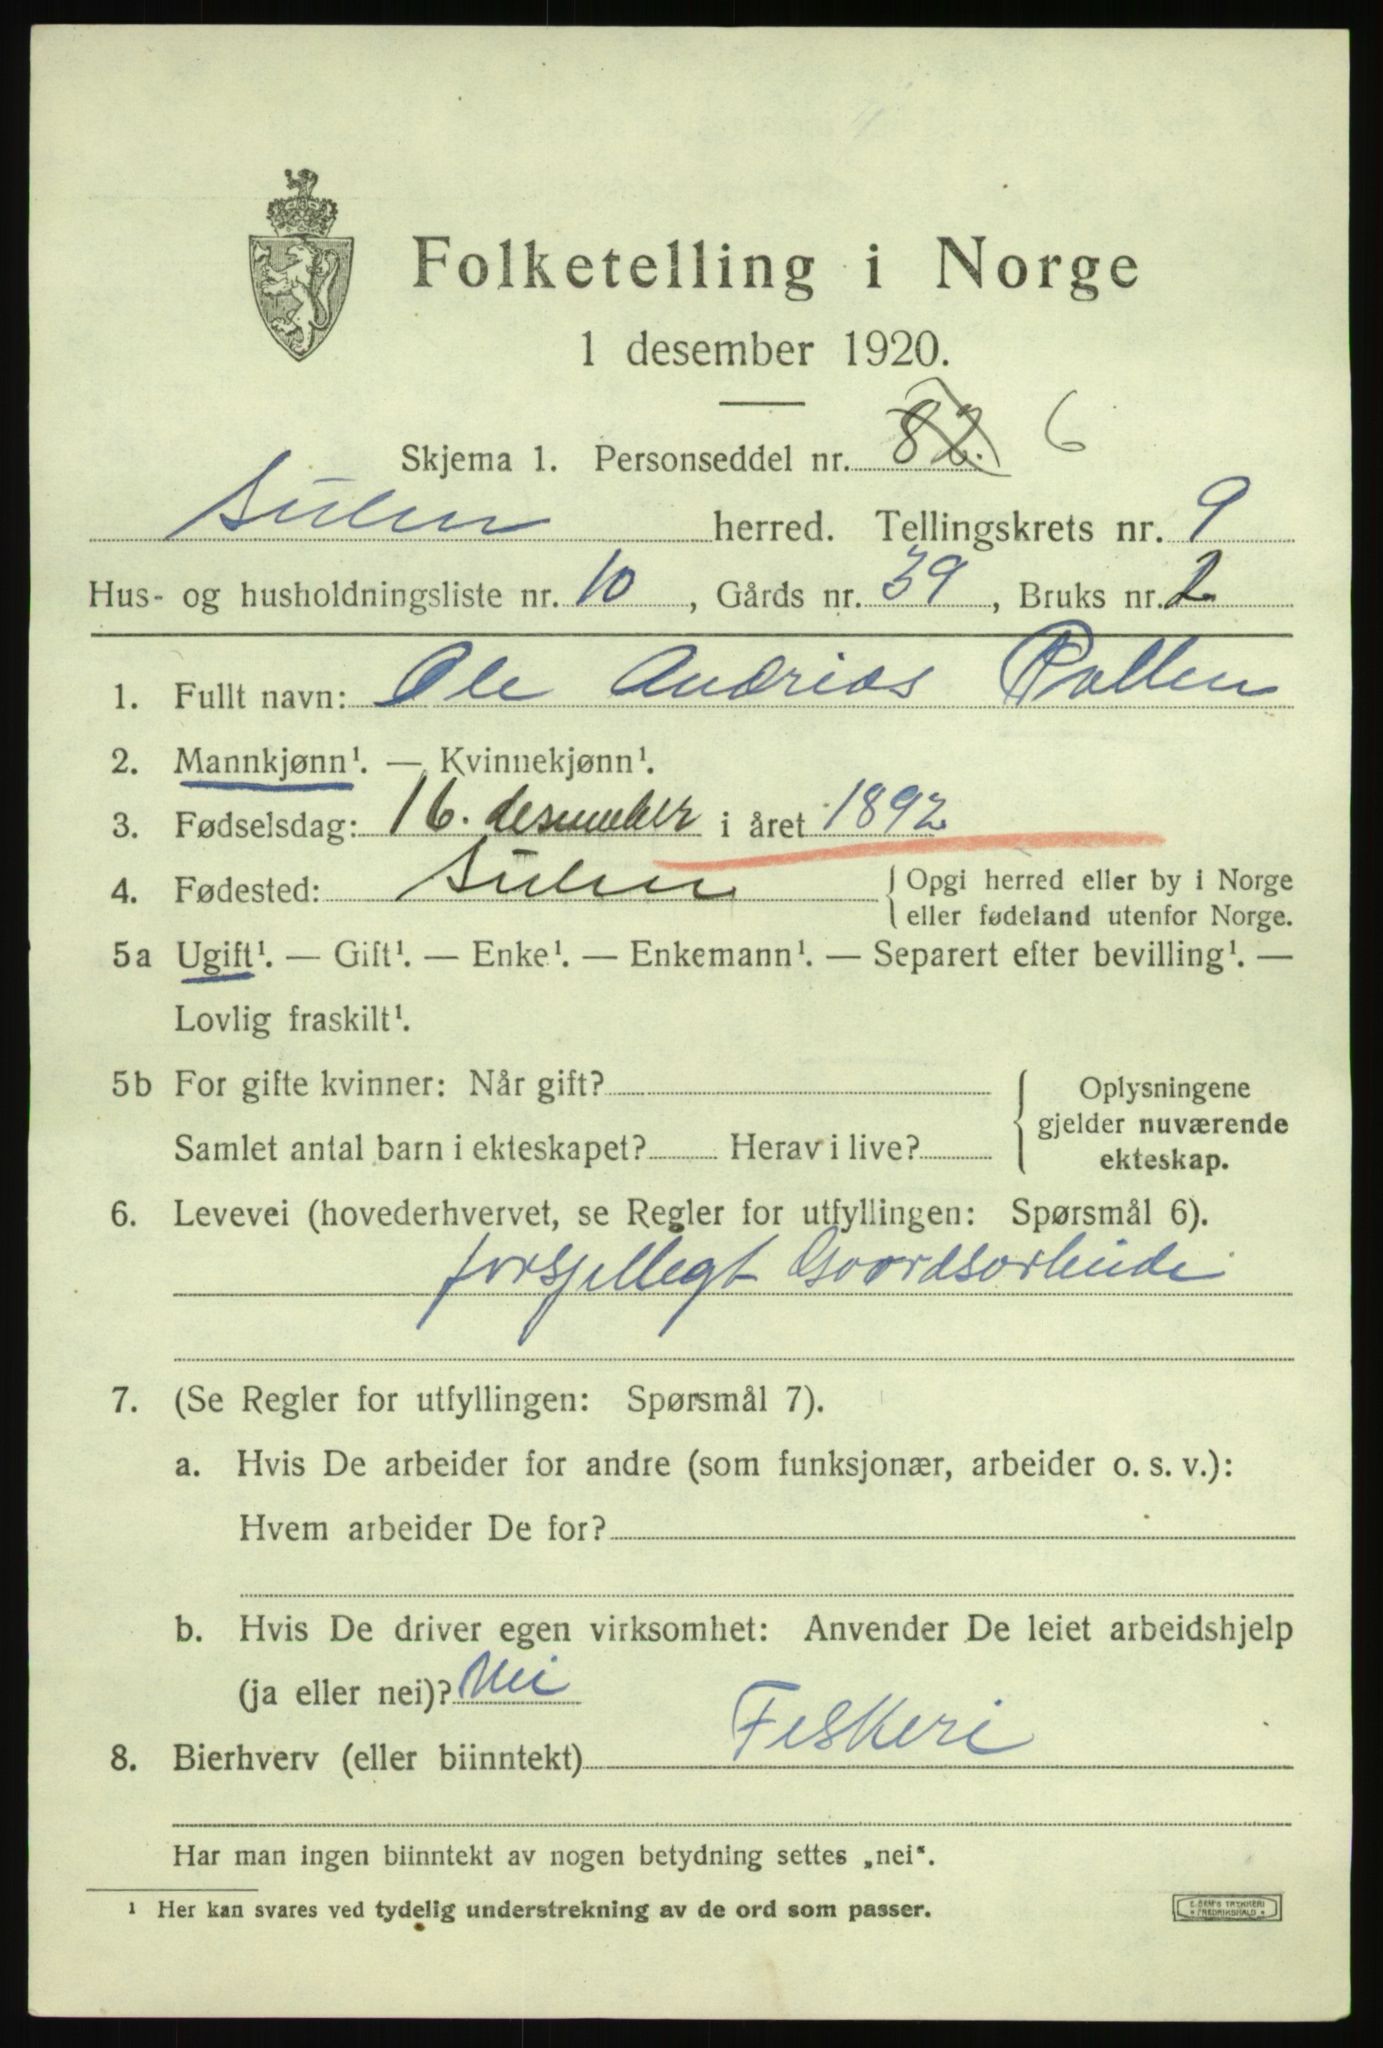 Folketelling i Norge
1 desember 1920.
Skjema 1. Personseddel nr. 82. 6
Sulen herred. Tellingskrets nr. 9
Hus- og husholdningsliste nr. 10, Gårds nr. 39, Bruks nr. 2
1. Fullt navn: Ole Andreas Pollen
2. Mannkjønn¹. — Kvinnekjønn¹.
3. Fødselsdag: 16. desember i året 1892
4. Fødested: Sulen { Opgi herred eller by i Norge
eller fødeland utenfor Norge.
5a Ugift¹. — Gift¹. — Enke¹. — Enkemann¹. — Separert efter bevilling¹. —
Lovlig fraskilt¹.
5b For gifte kvinner: Når gift?
Samlet antal barn i ekteskapet? Herav i live?
Oplysningene
gjelder nuværende
ekteskap.
6. Levevei (hovederhvervet, se Regler for utfyllingen: Spørsmål 6).
forsjellegt Goordsorbeide
7. (Se Regler for utfyllingen: Spørsmål 7).
a. Hvis De arbeider for andre (som funksjonær, arbeider o. s. v.):
Hvem arbeider De for?
b. Hvis De driver egen virksomhet: Anvender De leiet arbeidshjelp
(ja eller nei)? Nei
8. Bierhverv (eller biinntekt) Feskeri
Har man ingen biinntekt av nogen betydning settes „nei“.
¹ Her kan svares ved tydelig understrekning av de ord som passer.
E. SEM'S TRYKKERI
FREDRIKSHALD